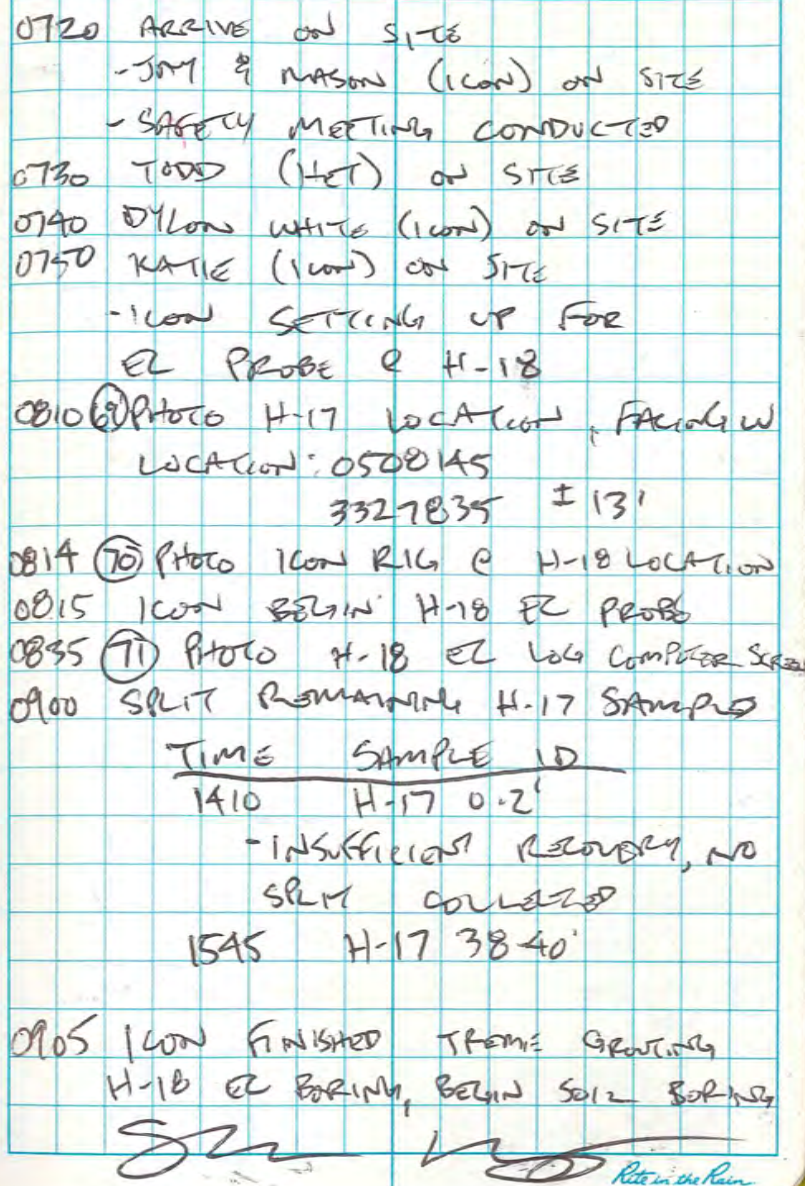 0720 ARRIVE ON SITE
- JAY & MASON (ICON) ON SITE
- SAFETY MEETING CONDUCTED
0730 TODD (HET) ON SITE
0740 DYLON WHITE (ICON) ON SITE
0750 KATIE (ICON) ON SITE
- ICON SETTING UP FOR
EC PROBE @ H-18
0810 (69) PHOTO H-17 LOCATION, FACING W
LOCATION: 0508145
3327835 ± 13'
0814 (70) PHOTO ICON RIG @ H-18 LOCATION
0815 ICON BEGIN H-18 EC PROBE
0835 (71) PHOTO H-18 EC LOG COMPUTER SCREEN
0900 SPLIT REMAINING H-17 SAMPLES
TIME SAMPLE ID
1410 H-17 0-2'
- INSUFFICIENT RECOVERY, NO
SPLIT COLLECTED
1545 H-17 38-40'
0905 ICON FINISHED TREMIE GROUTING
H-18 EC BORING, BEGIN SOIL BORING
Rite in the Rain